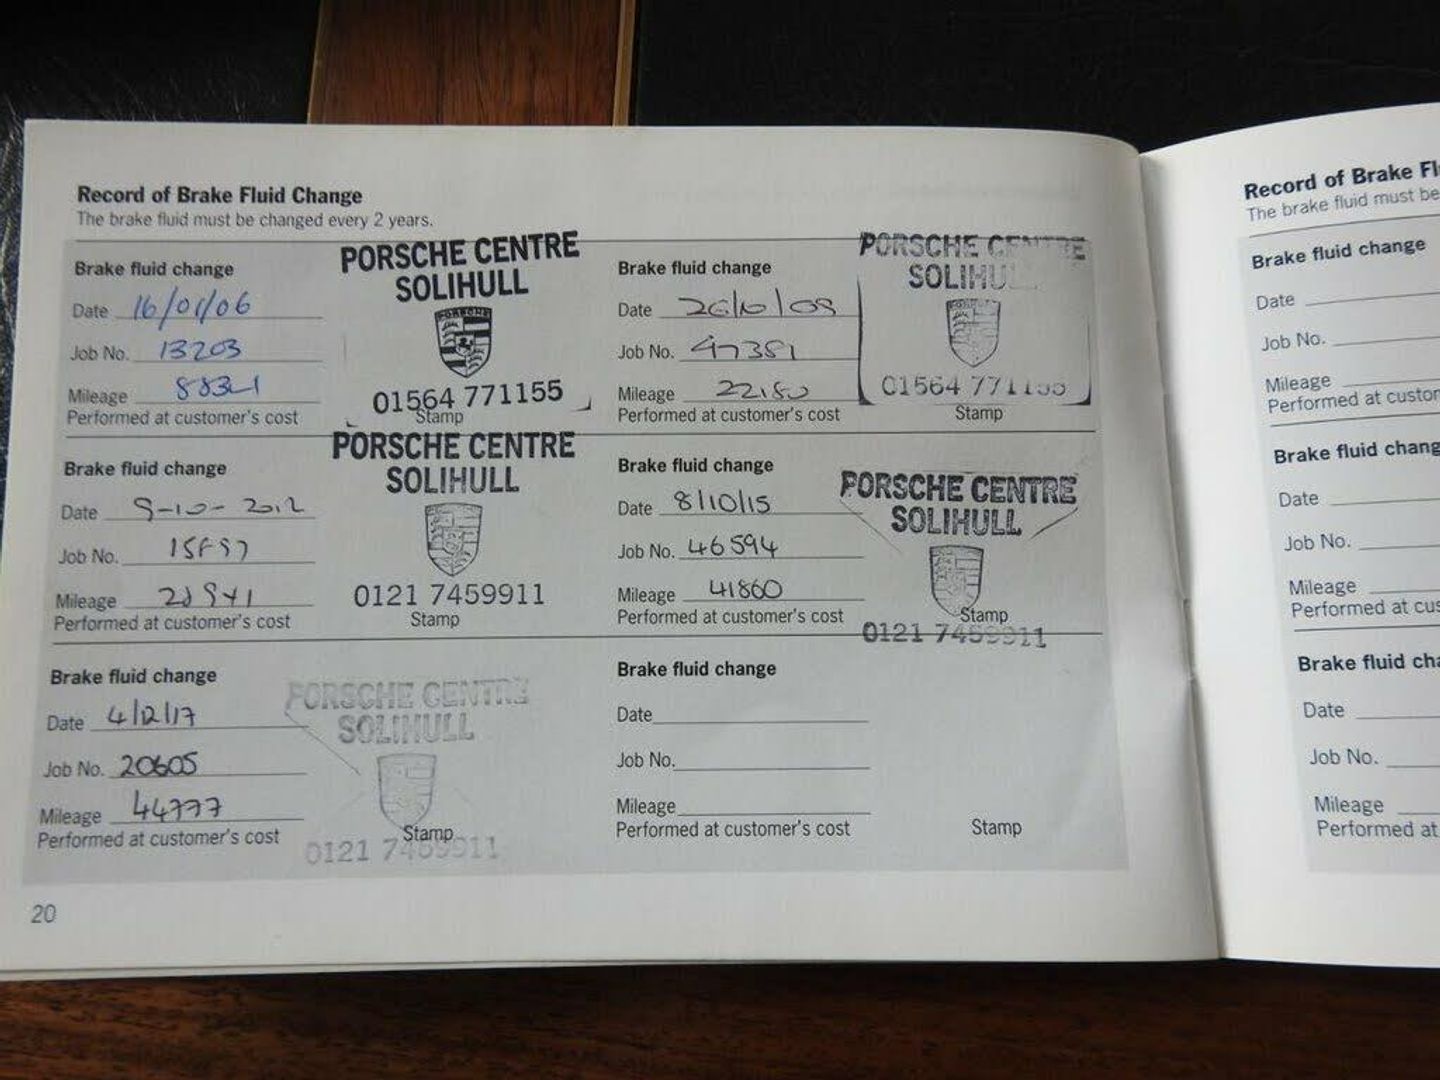 Record of Brake Fluid Change
The brake fluid must be changed every 2 years.
Brake fluid change
Date 16/01/06
Job No. 13203
Mileage
Performed at customer's cost
PORSCHE CENTRE
SOLIHULL
PORSCHE
01564 771155
Stamp
Brake fluid change
Date
Job No. 47351
Mileage 22180
Performed at customer's cost
PORSCHE CENTRE
SOLIHU
01564 771155
Stamp
Brake fluid change
Date 9-10-2012
Job No.
Mileage
Performed at customer's cost
PORSCHE CENTRE
SOLIHULL
0121 7459911
Stamp
Brake fluid change
Date 8/10/15
Job No. 46594
Mileage 41860
Performed at customer's cost
PORSCHE CENTRE
SOLIHULL
Stamp
0121 7459911
Brake fluid change
Date 4/12/17
Job No. 20605
Mileage 44777
Performed at customer's cost
PORSCHE CENTRE
SOLIHULL
Stamp
0121 7459911
Brake fluid change
Date
Job No.
Mileage
Performed at customer's cost
Stamp
20
Record of Brake Fl
The brake fluid must be
Brake fluid change
Date
Job No.
Mileage
Performed at custor
Brake fluid chang
Date
Job No.
Mileage
Performed at cus
Brake fluid cha
Date
Job No.
Mileage
Performed at